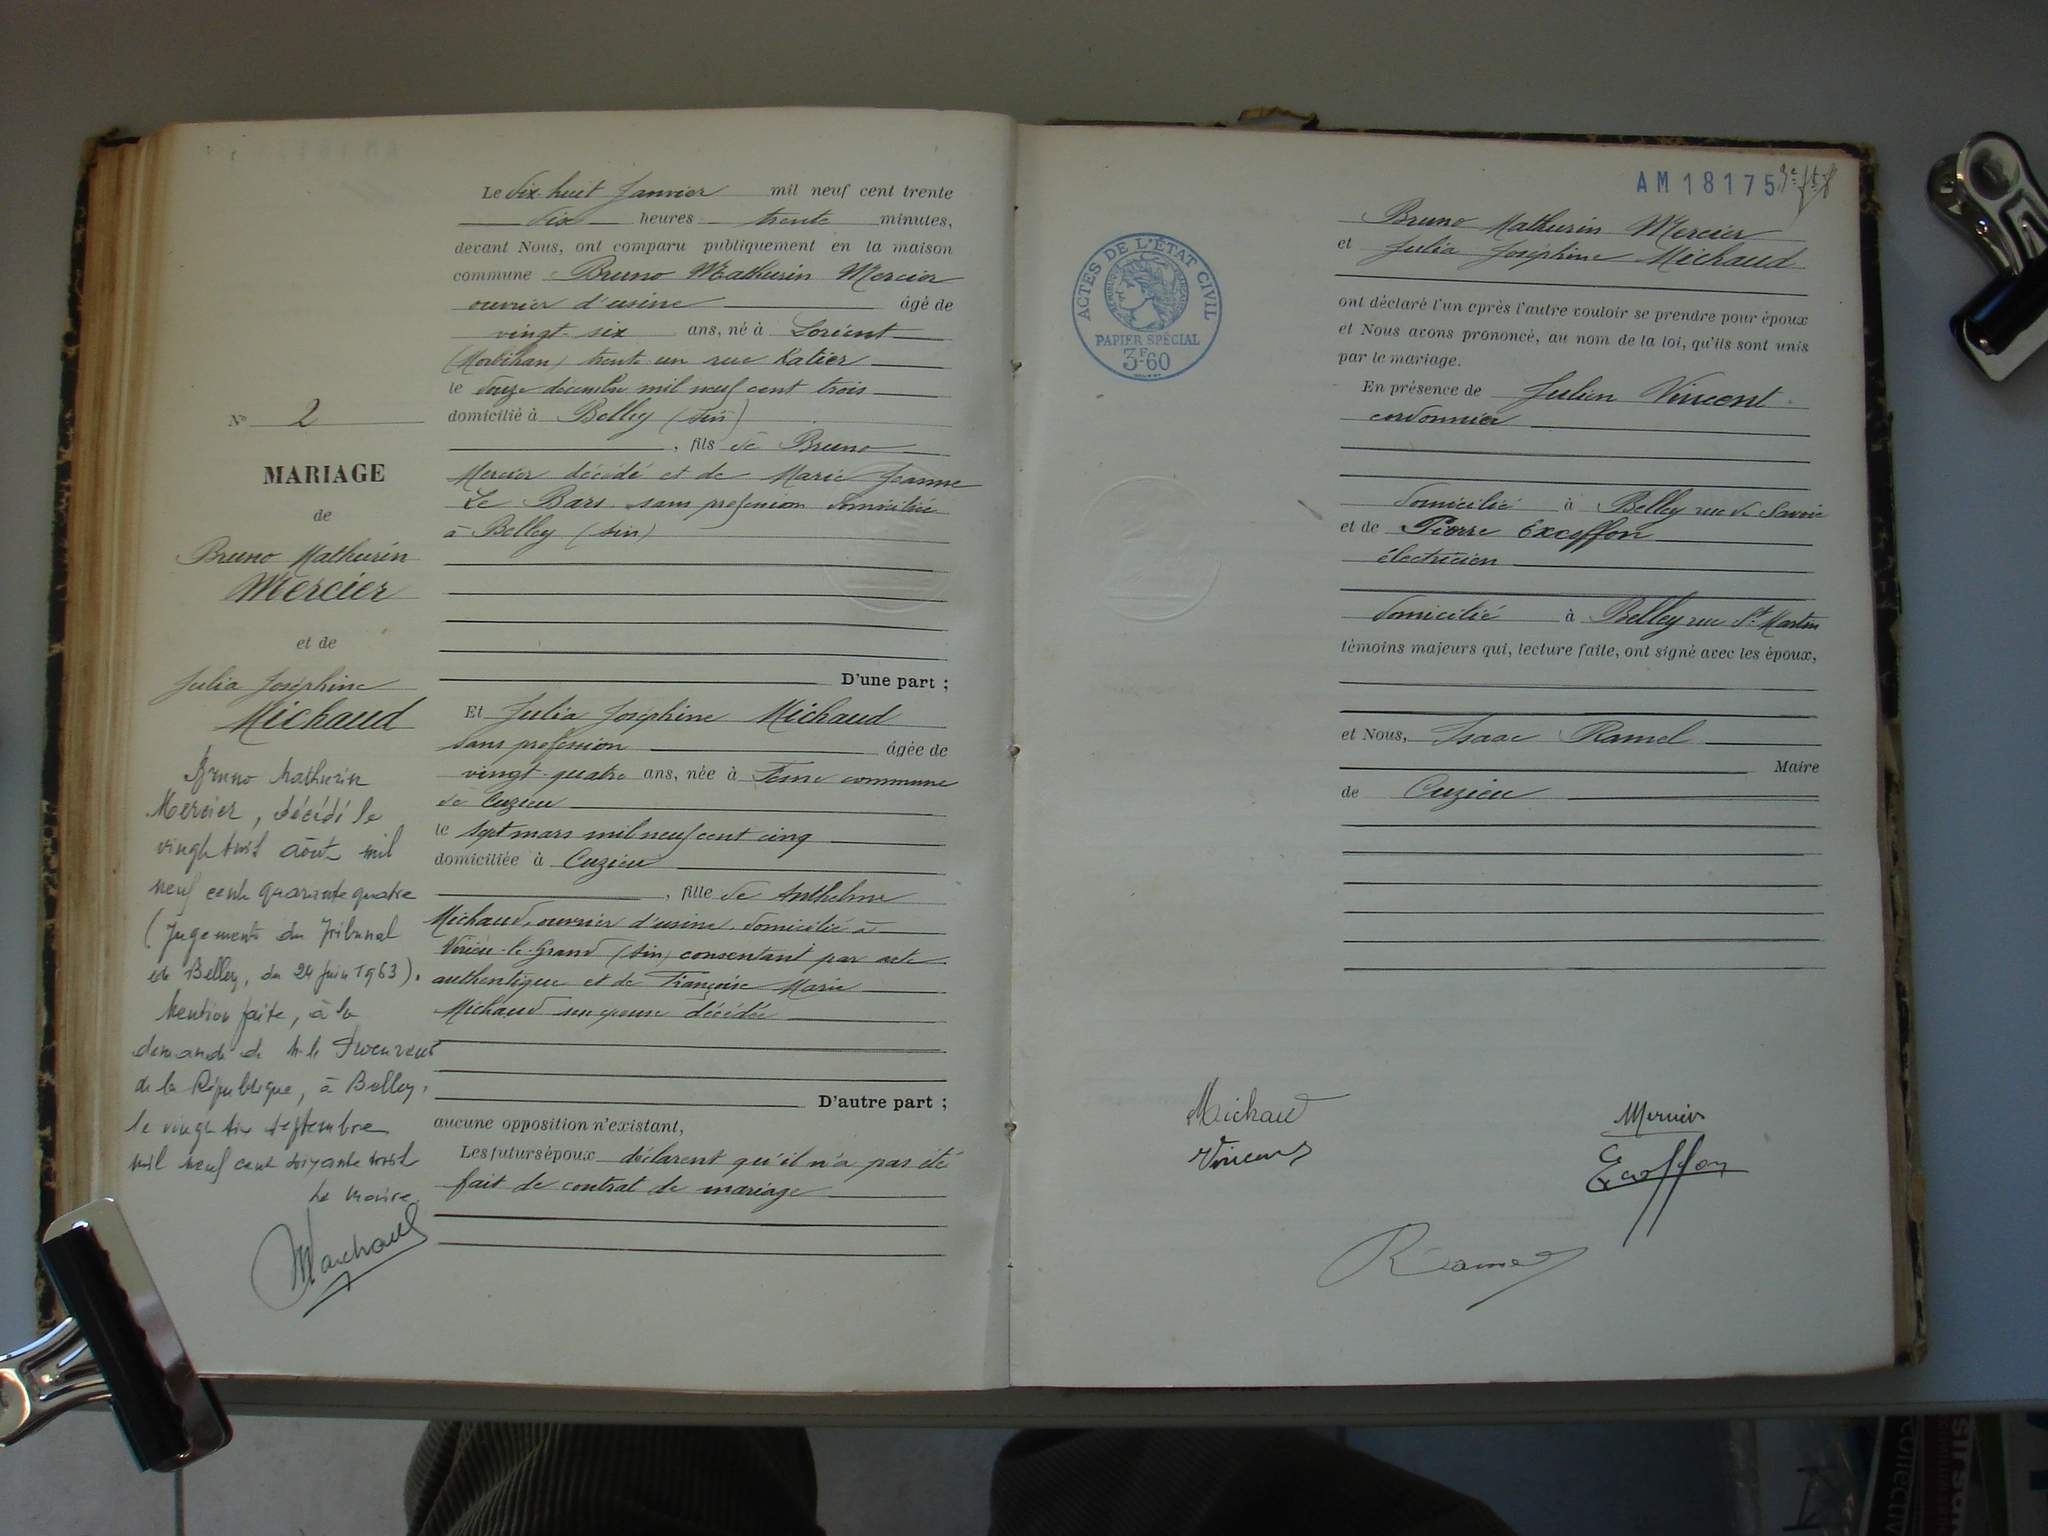 N° 2
MARIAGE
de
Bruno Mathurin
Mercier
et de
Julia Joséphine
Michaud
Bruno Mathurin
Mercier, décédé le
vingt trois août mil
neuf cent quarante quatre
(Jugement du Tribunal
de Belley, du 24 juin 1963).
Mention faite, à la
demande de M. le Procureur
de la République, à Belley,
le vingt six septembre
mil neuf cent soixante trois
Le Maire,
Le dix-huit Janvier mil neuf cent trente
dix heures trente minutes,
devant Nous, ont comparu publiquement en la maison
commune Bruno Mathurin Mercier
ouvrier d'usine âgé de
vingt-six ans, né à Lorient
(Morbihan) trente un rue
le douze décembre mil neuf cent trois
domicilié à Belley (Ain)
, fils de Bruno
Mercier décédé et de Marie Jeanne
Le Bars sans profession domiciliée
à Belley (Ain)
D'une part ;
Et Julia Joséphine Michaud
sans profession âgée de
vingt-quatre ans, née à commune
de Cuzieu
le sept mars mil neuf cent cinq
domiciliée à Cuzieu
, fille de Anthelme
Michaud, ouvrier d'usine domicilié à
Virieu-le-Grand (Ain) consentant par acte
authentique et de Françoise Marie
Michaud son épouse décédée
D'autre part ;
aucune opposition n'existant,
Les futurs époux déclarent qu'il n'a pas été
fait de contrat de mariage
AM 18175
ACTES DE L'ÉTAT CIVIL
RÉPUBLIQUE FRANÇAISE
PAPIER SPÉCIAL
3F.60
Bruno Mathurin Mercier
et Julia Joséphine Michaud
ont déclaré l'un après l'autre vouloir se prendre pour époux
et Nous avons prononcé, au nom de la loi, qu'ils sont unis
par le mariage.
En présence de Julien Vincent
cordonnier
domicilié à Belley rue de Savoie
et de Pierre Excoffon
électricien
domicilié à Belley rue St Martin
témoins majeurs qui, lecture faite, ont signé avec les époux,
et Nous, Isaac Ramel
Maire
de Cuzieu
Michaud
Mercier
Vincent
Excoffon
Ramel